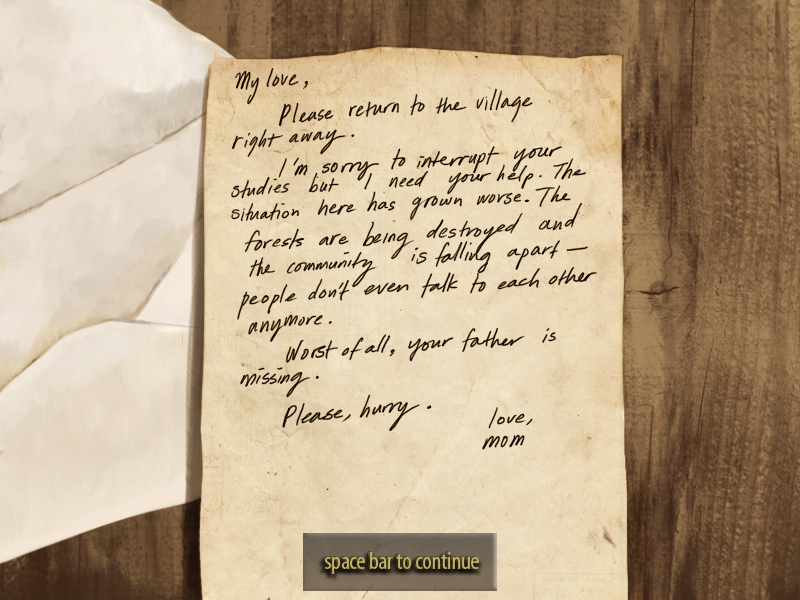 My love,
Please return to the village
right away.
I'm sorry to interrupt your
studies but I need your help. The
situation here has grown worse. The
forests are being destroyed and
the community is falling apart —
people don't even talk to each other
anymore.
Worst of all, your father is
missing.
Please, hurry.
love,
mom
space bar to continue